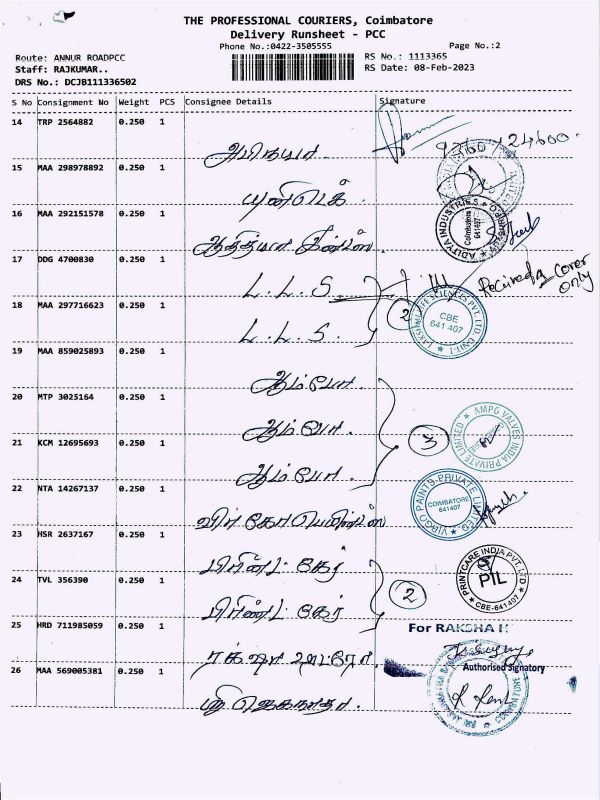 THE PROFESSIONAL COURIERS, Coimbatore
Delivery Runsheet - PCC
Phone No.:0422-3505555
Page No.:2
Route: ANNUR ROADPCC
RS No.: 1113365
Staff: RAJKUMAR..
RS Date: 08-Feb-2023
DRS No.: DCJB111336502
S No Consignment No Weight PCS Consignee Details Signature
14 TRP 2564882 0.250 1
9360 124600.
15 MAA 298978892 0.250 1
16 MAA 292151578 0.250 1
ADITYA INDUSTRIES
Coimbatore
641407
17 DDG 4700830 0.250 1
L. L. S.
Received a cover only
18 MAA 297716623 0.250 1
L. L. S.
2
LAKSHMI LIFE SCIENCES PVT. LTD. UNIT-I
CBE
641 407
19 MAA 859025893 0.250 1
ஆம்போ.
20 MTP 3025164 0.250 1
ஆம்போ.
3
AMPG VALVES INDIA PRIVATE LIMITED
21 KCM 12695693 0.250 1
ஆம்போ.
22 NTA 14267137 0.250 1
விர்கோ பெயிண்ட்ஸ்
VIRGO PAINTS PRIVATE LIMITED
COIMBATORE
641407
23 HSR 2637167 0.250 1
பிரிண்ட் கேர்
24 TVL 356390 0.250 1
பிரிண்ட் கேர்
2
PRINTCARE INDIA PVT. LTD.
PIL
CBE-641407
25 HRD 711985059 0.250 1
For RAKSHA
ரக்ஷா
Authorised Signatory
26 MAA 569005381 0.250 1
ஸ்ரீ ஜெகநாதா.
COIMBATORE